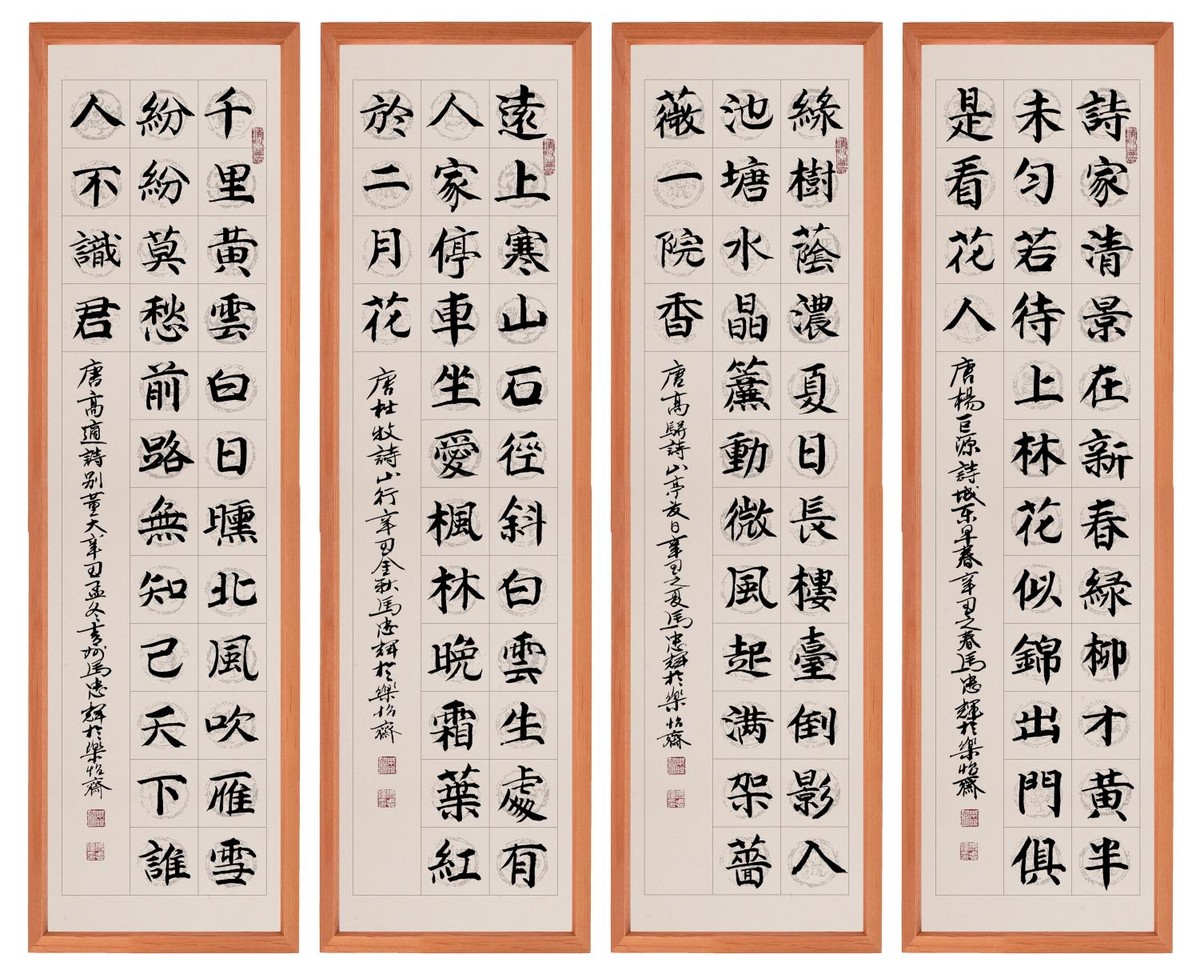 詩家清景在新春緑柳才黃半
未匀若待上林花似錦出門俱
是看花人
唐楊巨源詩城东早春辛丑之春馬忠輝於樂怡齋
緑樹蔭濃夏日長樓臺倒影入
池塘水晶簾動微風起满架薔
薇一院香
唐高駢詩山亭夏日辛丑之夏馬忠輝於樂怡齋
遠上寒山石徑斜白雲生處有
人家停車坐愛楓林晚霜葉紅
於二月花
唐杜牧詩山行辛丑金秋馬忠輝於樂怡齋
千里黃雲白日曛北風吹雁雪
紛紛莫愁前路無知己天下誰
人不識君
唐高適詩别董大辛丑孟冬馬忠輝於樂怡齋